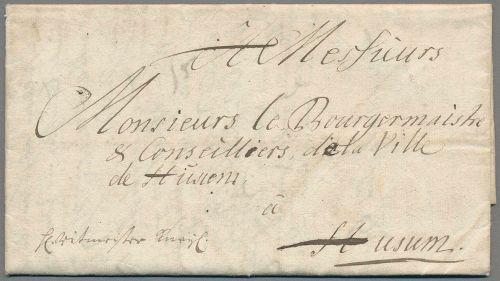 A Messieurs
Monsieurs le Bourgermaistre
& Conseilliers de la Ville
de Husum.
â
Husum.